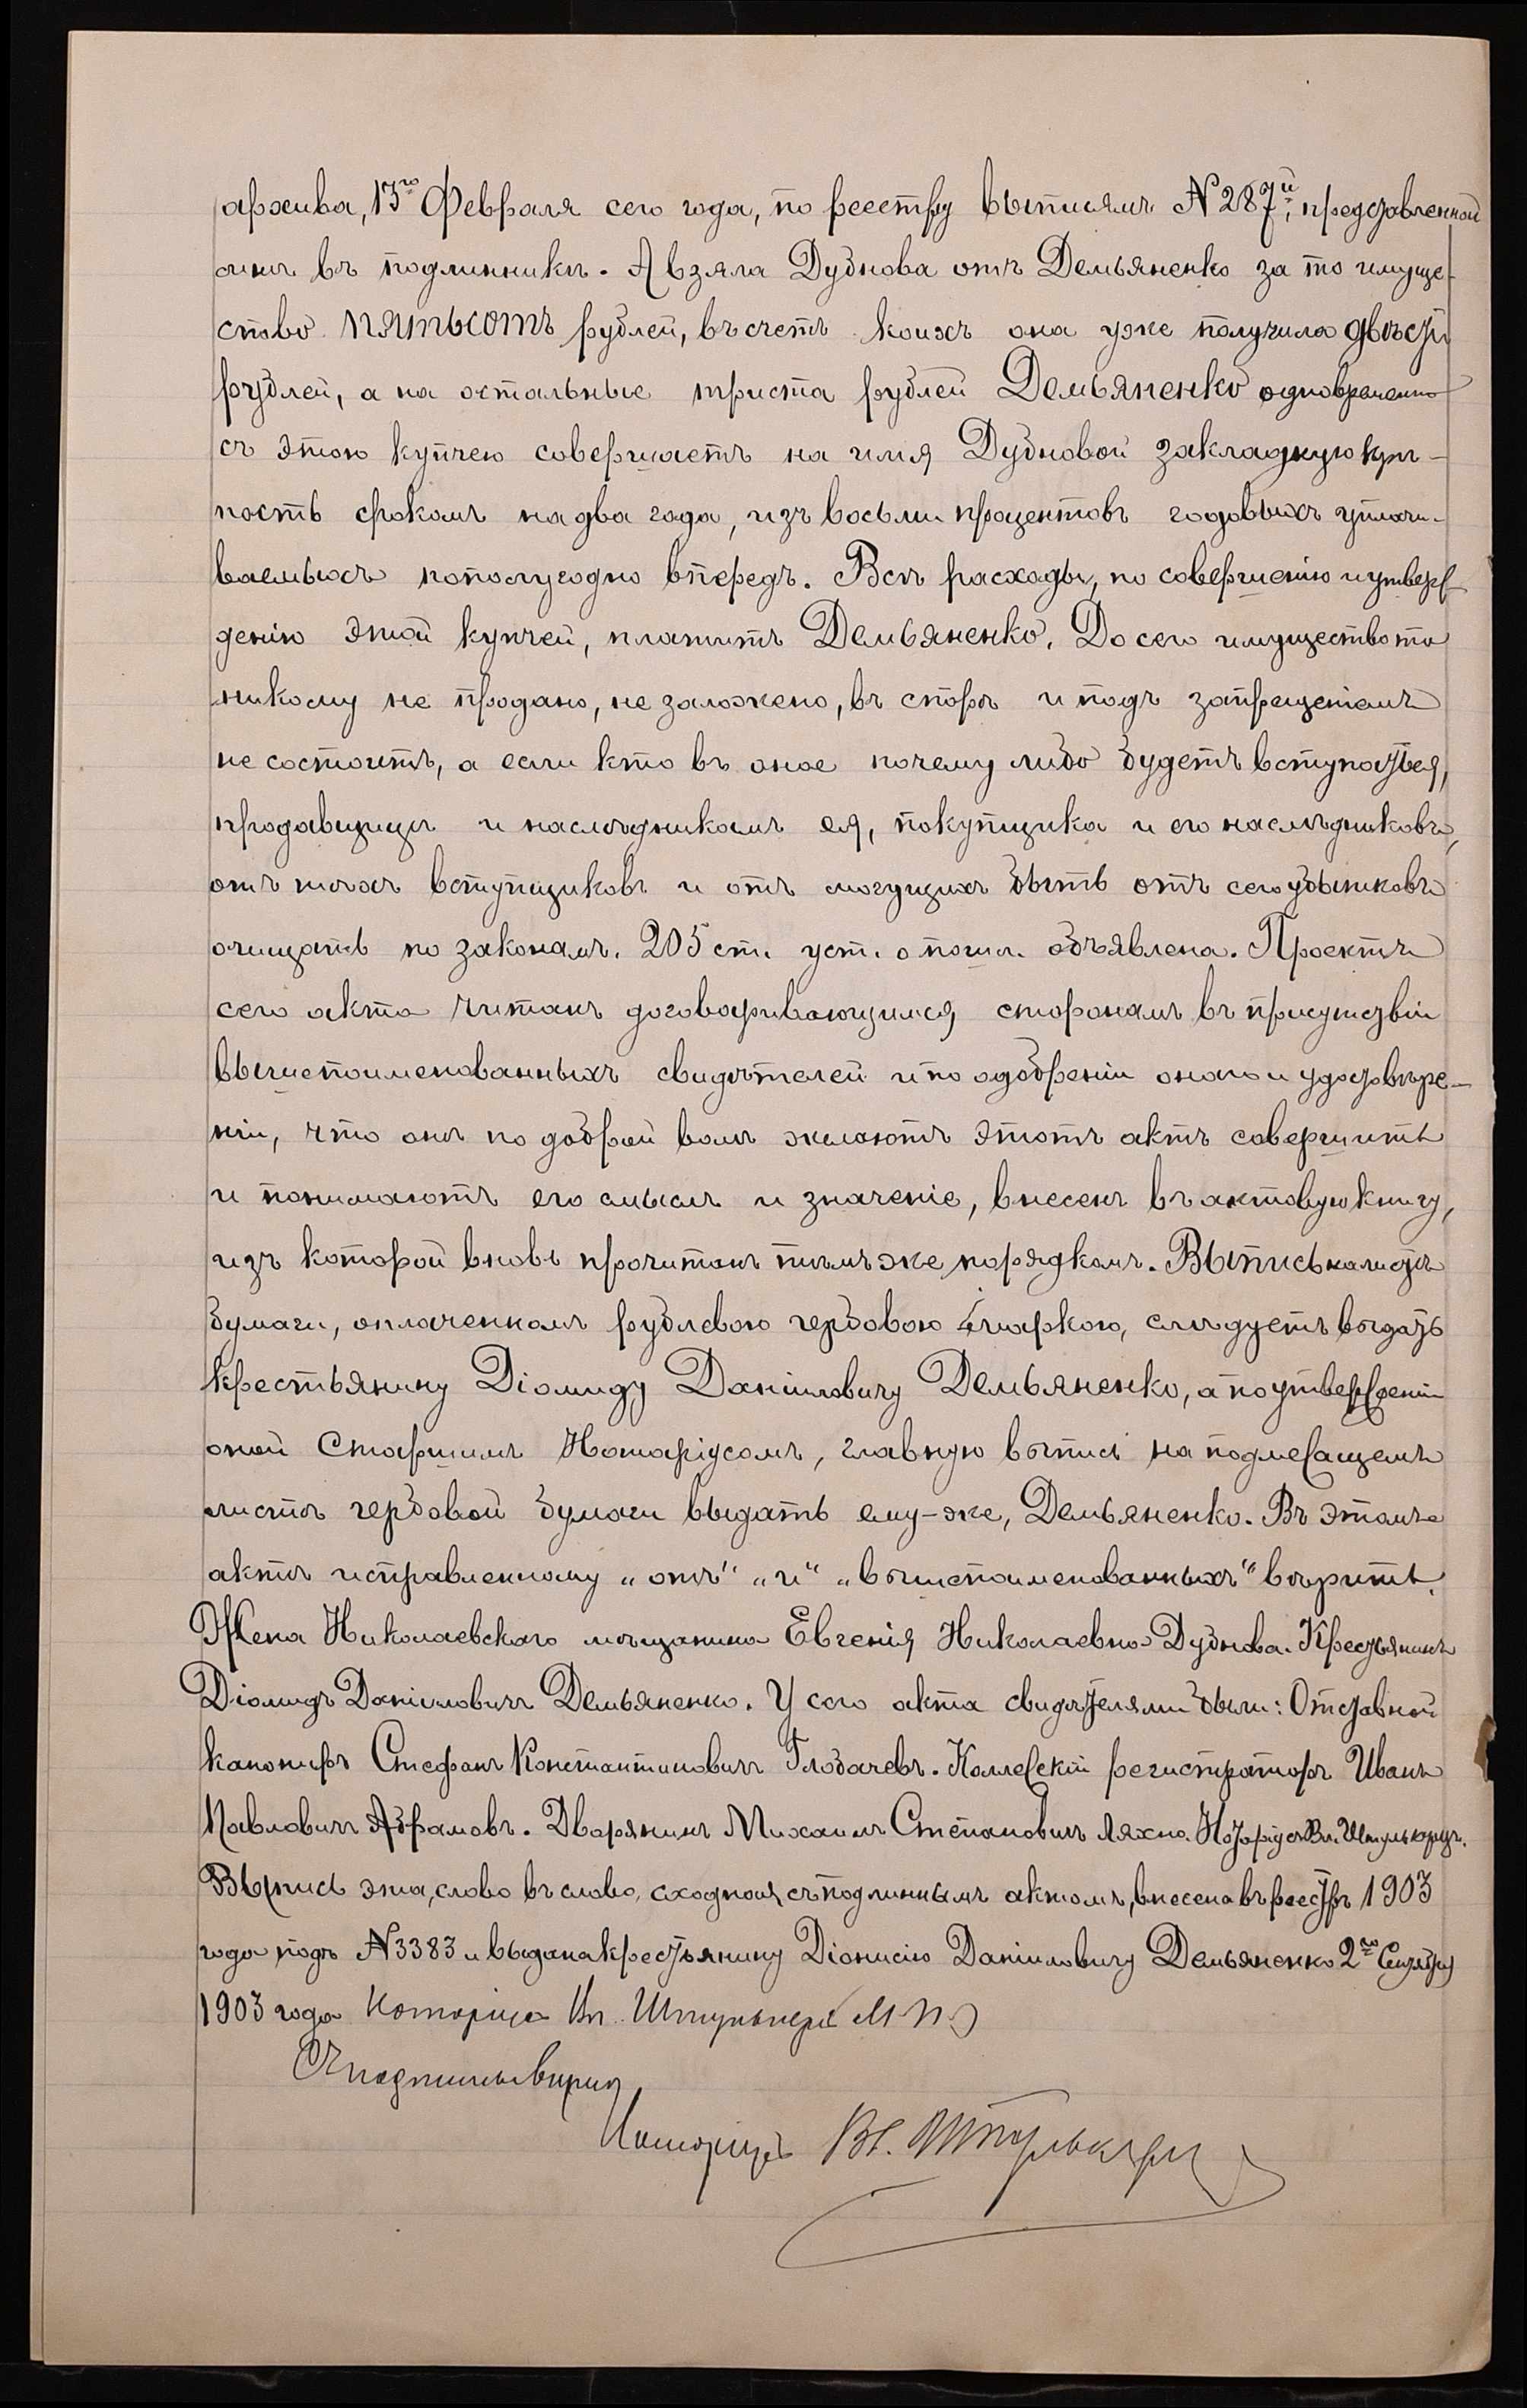 архива, 13го Февраля сего года, по реестру выписямъ №287й, представленной
мнѣ въ подлинникѣ. А взяла Дубнова отъ Демьяненко за то имуще-
ство пятьсотъ рублей, въ счетъ коихъ она уже получила двѣсти
рублей, а на остальные триста рублей Демьяненко одновременно
съ этою купчею совершаетъ на имя Дубновой закладную крѣ-
пость срокомъ на два года, изъ восьми процентовъ годовыхъ уплачи-
ваемыхъ по полугодно впередъ. Всѣ расходы, по совершенію и утверж-
денію этой купчей, платитъ Демьяненко. До сего имущество то
никому не продано, не заложено, въ спорѣ и подъ запрещеніемъ
не состоитъ, а если кто въ оное почему либо будетъ вступаться,
продавщицѣ и наслѣдникамъ ея, покупщика и его наслѣдниковъ,
отъ тѣхъ вступщиковъ и отъ могущихъ быть отъ сего убытковъ
очищать по законамъ. 205 ст. уст. о пошл. объявлена. Проектъ
сего акта читанъ договаривающимся сторонамъ въ присутствіи
вышепоименованныхъ свидѣтелей и по одобреніи онаго и удостовѣре-
ніи, что они по доброй волѣ желаютъ этотъ актъ совершить
и понимаютъ его смыслъ и значеніе, внесенъ въ актовую книгу,
изъ которой вновь прочитанъ тѣмъ же порядкомъ. Выпись на листѣ
бумаги, оплаченномъ рублевою гербовою маркою, слѣдуетъ выдать
крестьянину Діомиду Даніиловичу Демьяненко, а по утвержденіи
оной Старшимъ Нотаріусомъ, главную выпись на подлежащемъ
листѣ гербовой бумаги выдать ему-же, Демьяненко. Въ этомъ
актѣ исправленному „отъ" „и" „вышепоименованныхъ" вѣрить.
Жена Николаевскаго мѣщанина Евгенія Николаевна Дубнова. Крестьянинъ
Діомидъ Даніиловичъ Демьяненко. У сего акта свидѣтелями были: Отставной
канониръ Стефанъ Константиновичъ Глобачевъ. Коллежскій регистраторъ Иванъ
Павловичъ Абрамовъ. Дворянинъ Михаилъ Степановичъ Ляхно. Нотаріусъ Вл. Штулькерцъ.
Выпись эта, слово въ слово, сходная съ подлиннымъ актомъ, внесена въ реестръ 1903
года подъ №3383 и выдана крестьянину Діонисію Даніиловичу Демьяненко 2го Сентября
1903 года Нотаріусъ Вл. Штулькерцъ М.П.
Съ подлиннымъ вѣрно,
Нотаріусъ Вл. Штулькерцъ